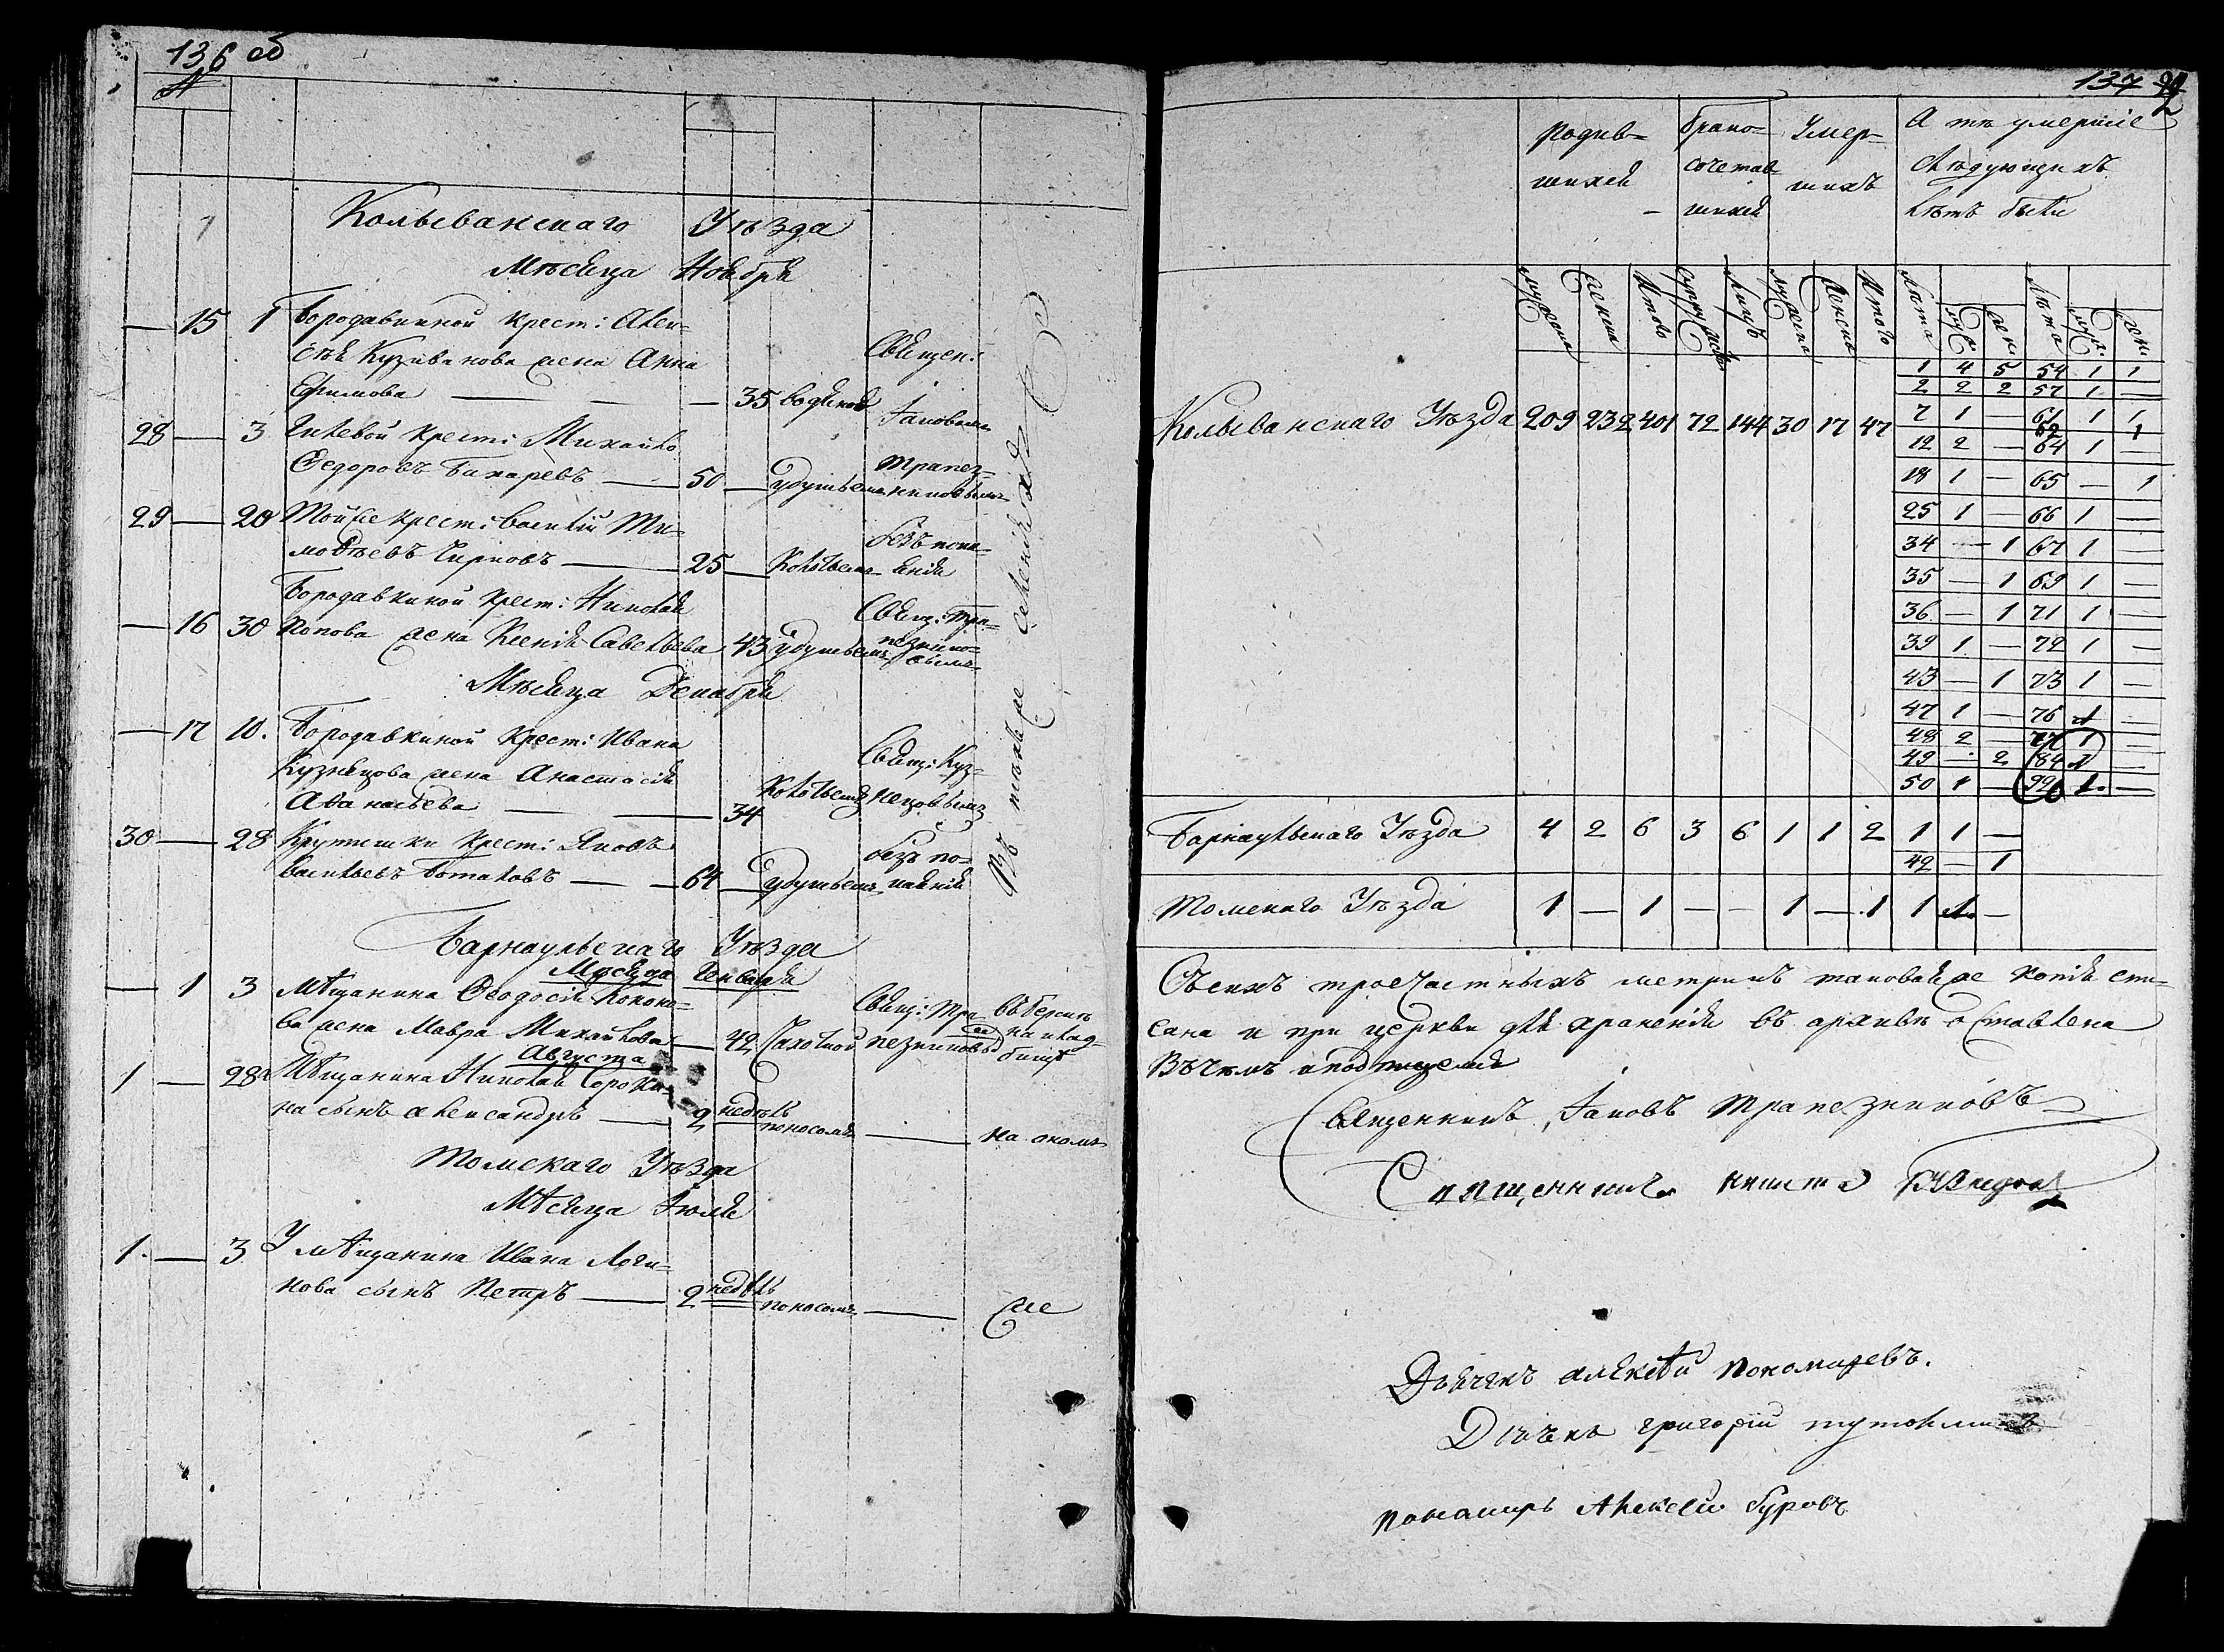 136 об
Колыванскаго Уѣзда
Мѣсяца Ноября
— 15 1 Бородавкиной крест: Алек=
сѣя Кузиванова жена Анна
Ефимова — — — 35 водяной
Священ:
Іаковымъ
28 — 3 крест: Михайло
Ѳедоровъ Бахаревъ — 50 — удушьемъ
Трапез=
никовымъ
29 — 20 Тойже крест: Василій Ти=
моѳѣевъ Чирковъ — 25 — Колотьемъ
безъ пока=
янія
Бородавкиной крест: Николая
— 16 30 Попова жена Ксенія Савельева 43 удушьемъ
Свящ: Тра=
пезнико=
вымъ
Мѣсяца Декабря
— 17 10. Бородавкиной крест: Ивана
Кузнецова жена Анастасія
Аѳанасьева — — 34 Колотьемъ
Свящ: Куз=
нецовымъ
30 — 28 Крутишки крест: Яковъ
Васильевъ Потаповъ — — 64 — удушьемъ
безъ по=
каянія
Въ тѣхже селеніяхъ
Барнаульскаго Уѣзда
Мѣсяца Генваря
— 1 3 Мѣщанина Ѳеодосія Конона=
ва жена Мавра Михайлова — 42 Чахоткой
Свящ: Тра
пезниковы
въ Берскѣ
на клад=
бищѣ
Августа
1 — 28 Мѣщанина Николая Сороки=
на сынъ Александръ — 2 недѣль поносомъ — на ономъ
Томскаго Уѣзда
Мѣсяца Іюля
1. — 3 У мѣщанина Ивана Логи=
нова сынъ Петръ — 2 недѣль поносомъ — же
137
Родив=
шихся
Брако=
сочетав
шихся
Умер=
шихъ
А тѣ умершіе
слѣдующихъ
лѣтъ были
мужеска женска Итого супружествъ Лицъ мужеска Женска Итого Лѣта муж: жен: Лѣта муж: жен:
Колыванскаго Уѣзда 209 232 401 72 144 30 17 47
1 4 5 54 1 1
2 2 2 57 1 —
7 1 — 61 1 1
62 1
12 2 — 64 1 —
18 1 — 65 — 1
25 1 — 66 1 —
34 — 1 67 1 —
35 — 1 69 1 —
36 — 1 71 1 —
39 1 — 72 1 —
43 — 1 73 1 —
47 1 — 76 1 —
48 2 — 77 1 —
49 — 2 84 1 —
50 1 — 1. —
Барнаульскаго Уѣзда 4 2 6 3 6 1 1 2 1 1 —
42 — 1
Томскаго Уѣзда 1 — 1 — — 1 — 1 1 1. —
Съсихъ троечастныхъ метрикъ таковаяже копія спи=
сана и при церкви для храненія въ архивѣ оставлена
Въчемъ и подпишемся
Священникъ Іаковъ Трапезниковъ
Священникъ Никита
Дьячекъ Алексѣй Пономаревъ.
Дьячекъ Григорій
Пономарь Алексѣй Гуровъ